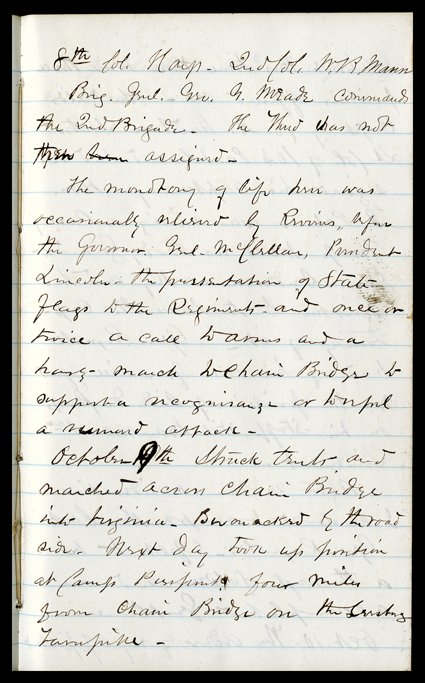 8th Col. Hays. 2nd Col. W. B. Mann
Brig. Genl. Geo. G. Meade commands
the 2nd Brigade. The Third was not
then assigned.
The monotony of life here was
occasionally relieved by Reviews, before
the Governor. Genl. McClellan, President
Lincoln. the presentation of State
flags to the Regiments. and once or
twice a call to arms and a
hasty march to Chain Bridge to
support a or to repel
a rumored attack.
October 9th Struck tents and
marched across Chain Bridge
into Virginia. Bivouacked by the road
side. Next day took up position
at Camp Pierpont four miles
from Chain Bridge on the
Turnpike.